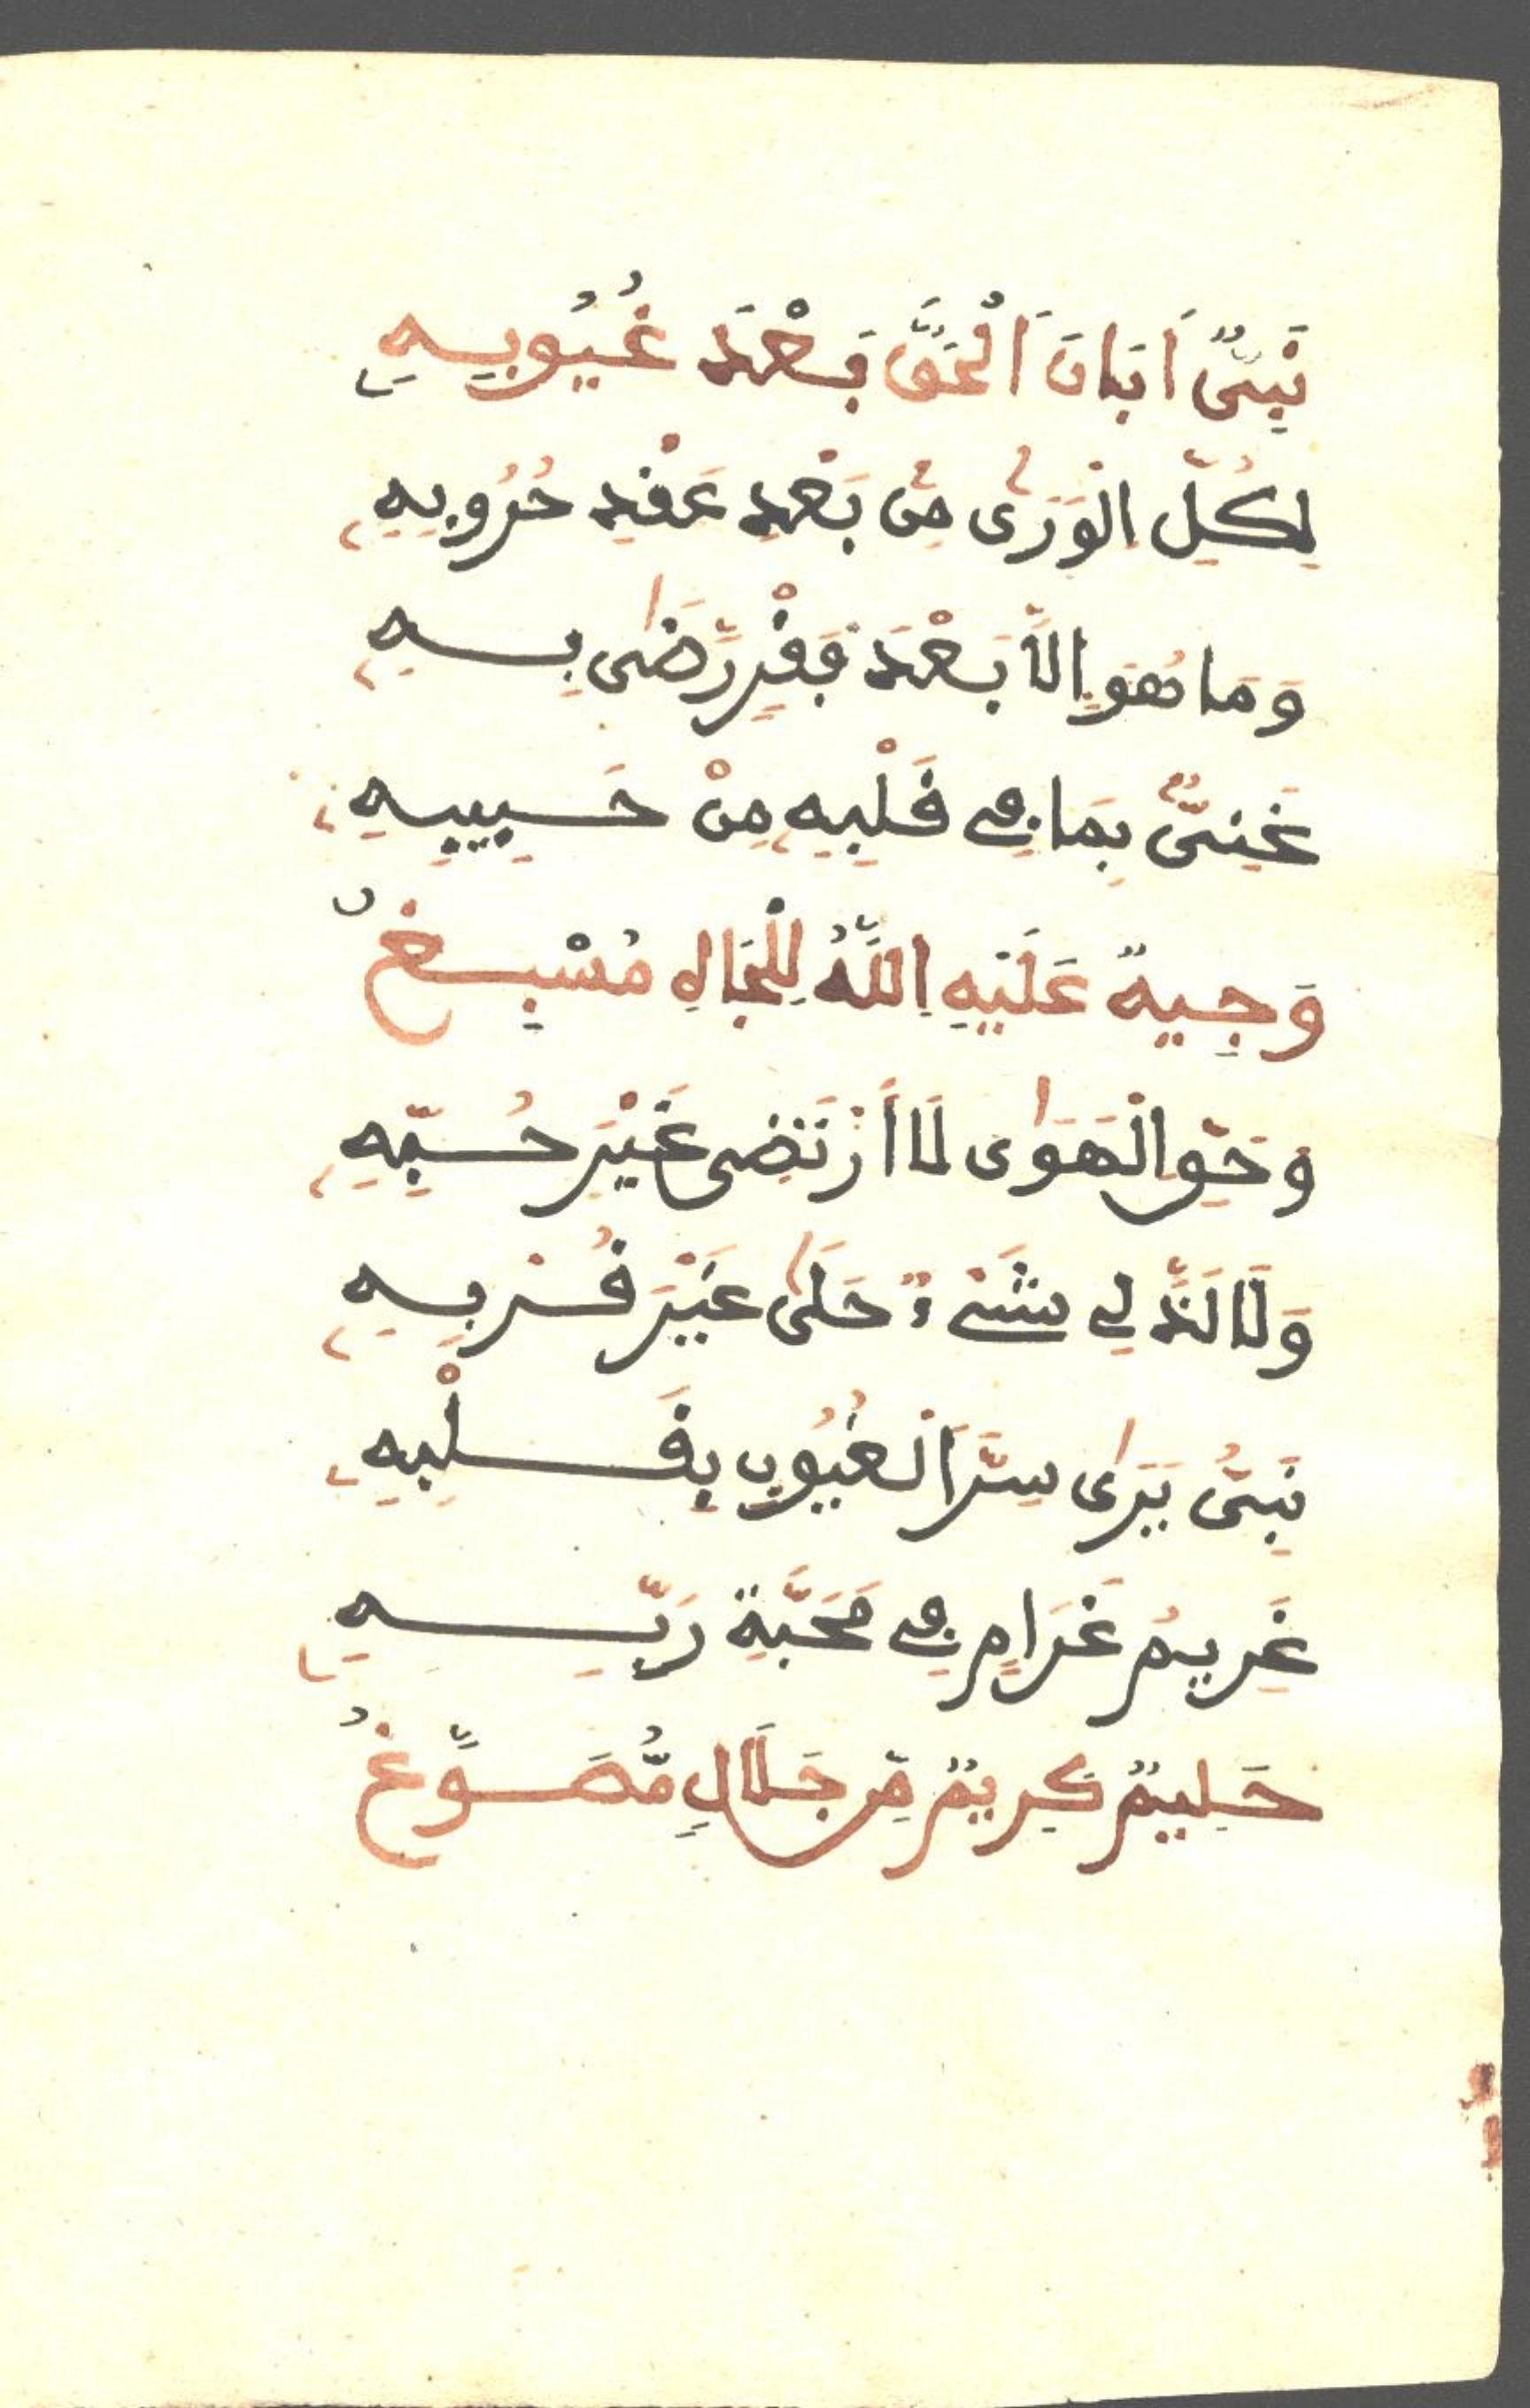 نَبِيٌّ اَبَانَ اَلْحَقَّ بَعْدَ غُيُوبِهِ
لِكُلِّ الْوَرَى مِن بَعْدِ عَقْدِ حُرُوبِهِ
وَمَا هُوَ إِلَّا بَعْدَ فَقْرٍ رَّضَى بِهِ
غَنِيٌّ بِمَا فِي قَلْبِهِ مِنْ حَبِيبِهِ
وَجِيهٌ عَلَيْهِ اِللَّهُ لِلْجَاهِ مُسْبِغُ
وَحَقِّ الْهَوَى لَا أَرْتَضِي غَيْرَ حُبِّهِ
وَلَا لَذَّ لِي شَيْءٌ حَلَى غَيْرَ قُرْبِهِ
نَبِيُّ يَرَى سِرَّ اَلْغُيُوبِ بِقَلْبِهِ
غَرِيمُ غَرَامٍ فِي مَحَبَّةِ رَبِّهِ
حَلِيمٌ كَرِيمٌ مِّن جَلَالٍ مُّصَوَّغُ